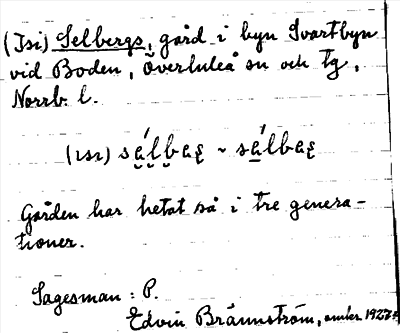 (Isi) Selbergs, gård i byn Svartbyn
vid Boden, Överluleå sn och tg,
Norrb. l.
(ɪsɪ) sálbaʂ ~ sálbaʂ
Gården har hetat så i tre genera-
tioner.
Sagesman: P.
Edvin Brännström,